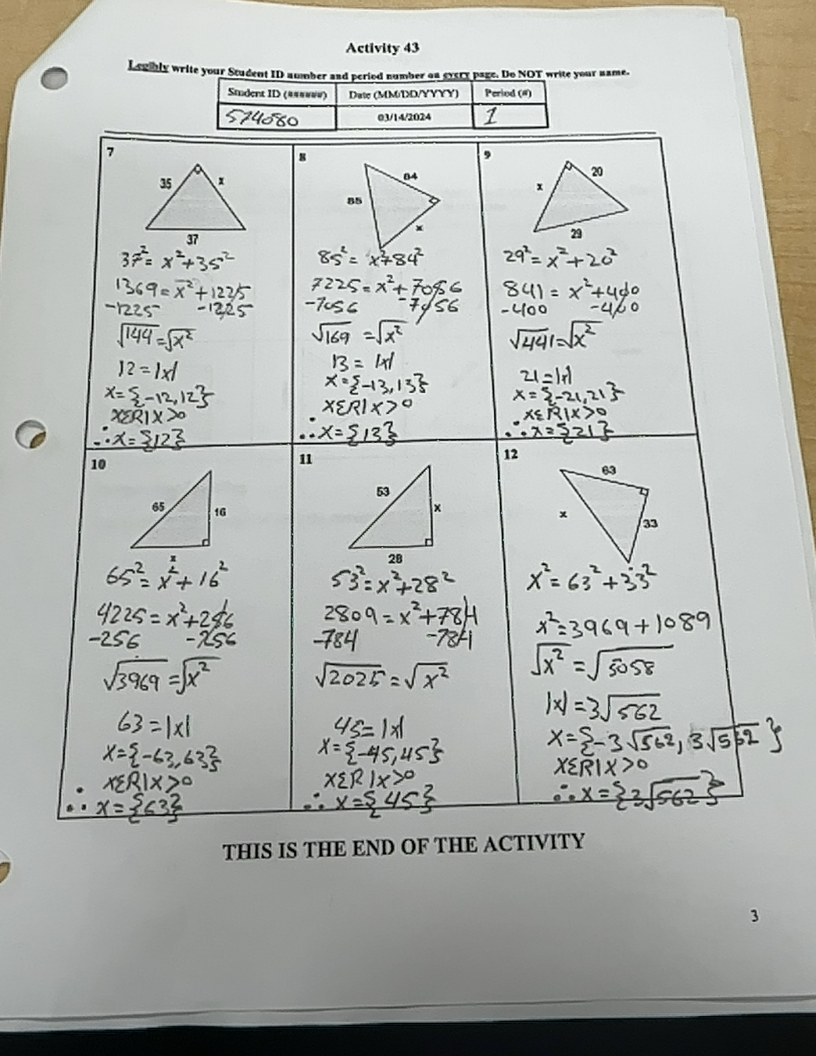 Activity 43
Legibly write your Student ID number and period number on every page. Do NOT write your name.
Student ID (######) Date (MM/DD/YYYY) Period (#)
574080 03/14/2024 1
7
35 x
37
37² = x² + 35²
1369 = x² + 1225
-1225 -1225
√144 = √x²
12 = |x|
x = {-12, 12}
xεR|x>0
∴ x = {12}
8
84
85
x
85² = x² + 84²
7225 = x² + 7056
-7056 -7056
√169 = √x²
13 = |x|
x = {-13, 13}
xεR|x>0
∴ x = {13}
9
20
x
29
29² = x² + 20²
841 = x² + 400
-400 -400
√441 = √x²
21 = |x|
x = {-21, 21}
xεR|x>0
∴ x = {21}
10
65 16
x
65² = x² + 16²
4225 = x² + 256
-256 -256
√3969 = √x²
63 = |x|
x = {-63, 63}
xεR|x>0
∴ x = {63}
11
53
x
28
53² = x² + 28²
2809 = x² + 784
-784 -784
√2025 = √x²
45 = |x|
x = {-45, 45}
xεR|x>0
∴ x = {45}
12
63
x
33
x² = 63² + 33²
x² = 3969 + 1089
√x² = √5058
|x| = 3√562
x = {-3√562, 3√562}
xεR|x>0
∴ x = {3√562}
THIS IS THE END OF THE ACTIVITY
3